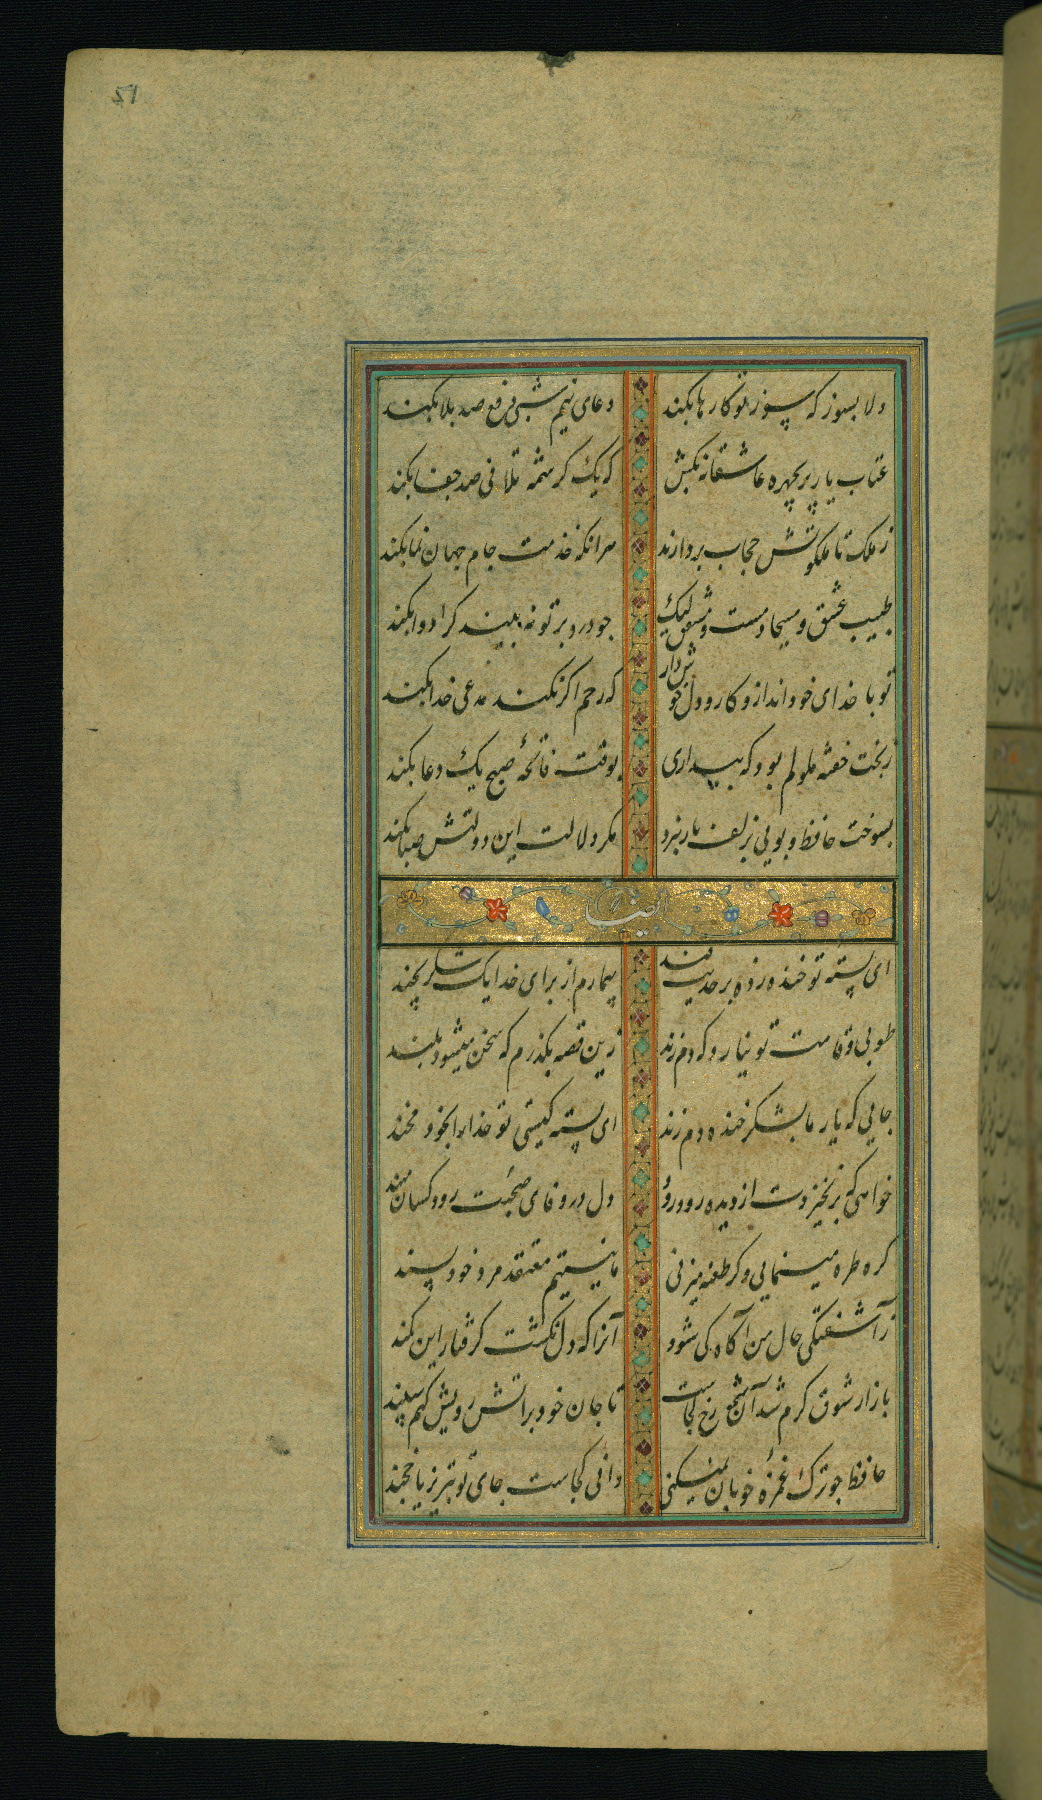 51
دلا بسوز که سوز تو کارها بکند دعای نیم شبی دفع صد بلا بکند
عتاب یار پریچهره عاشقانه بکش که یک کرشمه تلافی صد جفا بکند
ز ملک تا ملکوتش حجاب بردارند هر آنکه خدمت جام جهان نما بکند
طبیب عشق و مسیحا دمست و مشفق لیک چو درد بر تو نه بیند کرا دوا بکند
تو با خدای خود انداز و کار و دل خوش دار که رحم اگر نکند مدعی خدا بکند
ز بخت خفته ملولم بود که بیداری بوقت فاتحهٔ صبح یک دعا بکند
بسوخت حافظ و بویی ز زلف یار نبرد مگر دلالت این دولتش صبا بکند
ایضا
ای پسته تو خنده زده بر حدیث قند بیمارم از برای خدا یک شکر بخند
طوبی و قامت تو نیارد که دم زند زین قصه بگذرم که سخن میشود بلند
جایی که یار ما بشکر خنده دم زند ای پسته کیستی تو خدا را بخود مخند
خواهی که بر نخیزدت از دیده رود رود دل در وفای صحبت رود کسان مبند
گر طره مینمایی و گر طعنه میزنی ما نیستیم معتقد مرد خود پسند
ز آشفتگی حال من آگاه کی شود آنرا که دل نگشت گرفتار این کمند
بازار شوق گرم شد آن شمع رخ کجاست تا جان خود بر آتش رویش کنم سپند
حافظ چو ترک غمزهٔ خوبان نمیکنی دانی کجاست جای تو تبریز یا خجند